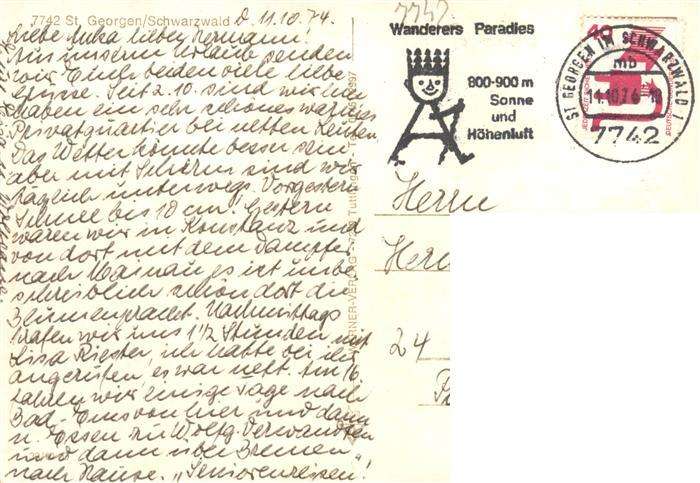 7742 St. Georgen/Schwarzwald d. 11.10.74.
Liebe Anka lieber Hermann!
Aus unserm Urlaub senden
wir Euch beiden viele liebe
Grüsse. Seit 2.10. sind wir hier
haben ein sehr schönes warmes
Privatquartier bei netten Leuten
Das Wetter könnte besser sein
aber mit Schirm sind wir
täglich unterwegs. Vorgestern
Schnee bis 10 cm. Gestern
waren wir in Konstanz und
von dort mit dem Dampfer
nach Mainau es ist unbe
schreiblich schön dort die
Blumenpracht. Nachmittags
trafen wir uns 1 1/2 Stunden mit
Lisa Riester, ich hatte bei ihr
angerufen, es war nett. Am 16.
fahren wir einige Tage nach
Bad-Ems von hier und dann
n. Essen zu Wolfg. Verwandten
und dann über Bremen
nach Hause. „Seniorenreisen!"
7742
Wanderers Paradies
800-900 m
Sonne
und
Höhenluft
ST GEORGEN IM SCHWARZWALD 1
mb
11.10.74-18
7742
Herrn
24